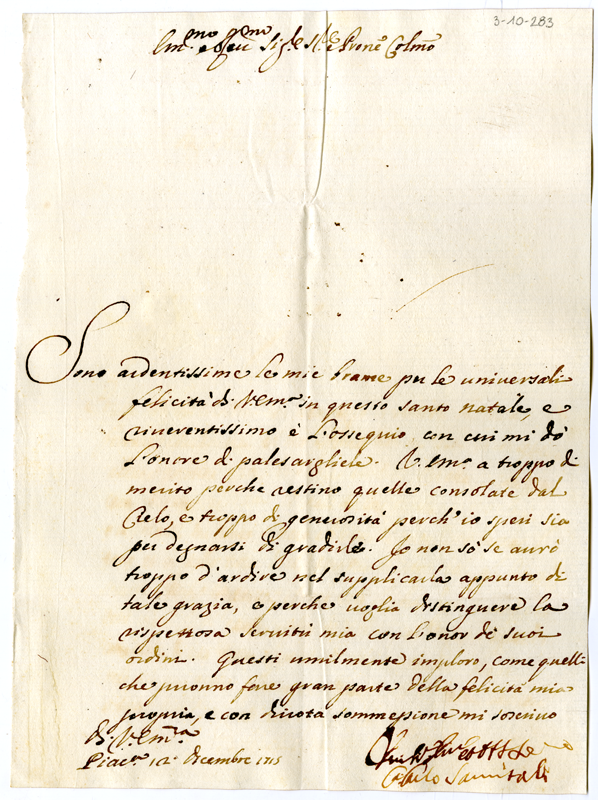 3-10-283
Em.mo e Rev.mo Sig.e S.re e Prone Colmo
Sono ardentissime le mie brame per le universali
felicità di V. Em.a in questo santo natale, e
riverentissimo è L'ossequio, con cui mi dò
L'onore di palesargliele. V. Em.a a troppo di
merito perche restino quelle consolate dal
Cielo, e troppo di generosità perch'io speri sia
per degnarsi di gradirle. Jo non sò se aurò
troppo d'ardire nel supplicarla appunto di
tale grazia, e perche voglia distinguere la
rispettosa servitù mia con L'onor de suoi
ordini. Questi umilmente imploro, come quelli
che puonno fare gran parte della felicità mia
propria, e con divota sommessione mi soscrivo
di V. Em.a
Piac.a 12 decembre 1715